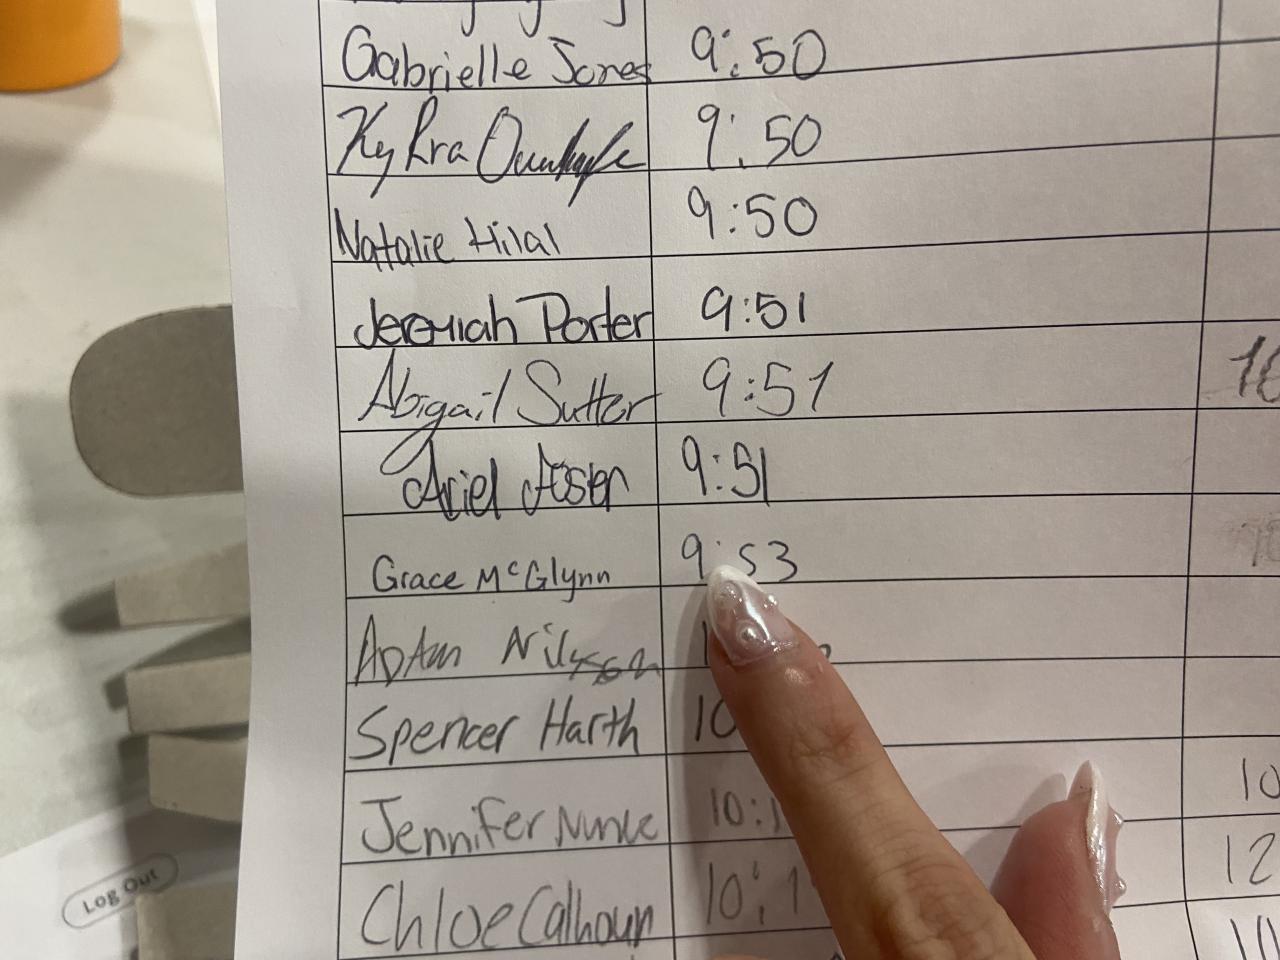 Gabrielle Jones 9:50
Kykra 9:50
Natalie Hilal 9:50
Jeremiah Porter 9:51
Abigail Sutter 9:51 10
Ariel 9:51
Grace McGlynn 9:53
Adam Nilsson
Spencer Harth 10
Jennifer Nunke 10:1 10
Chloe Calhoun 10:1 12
Log Out